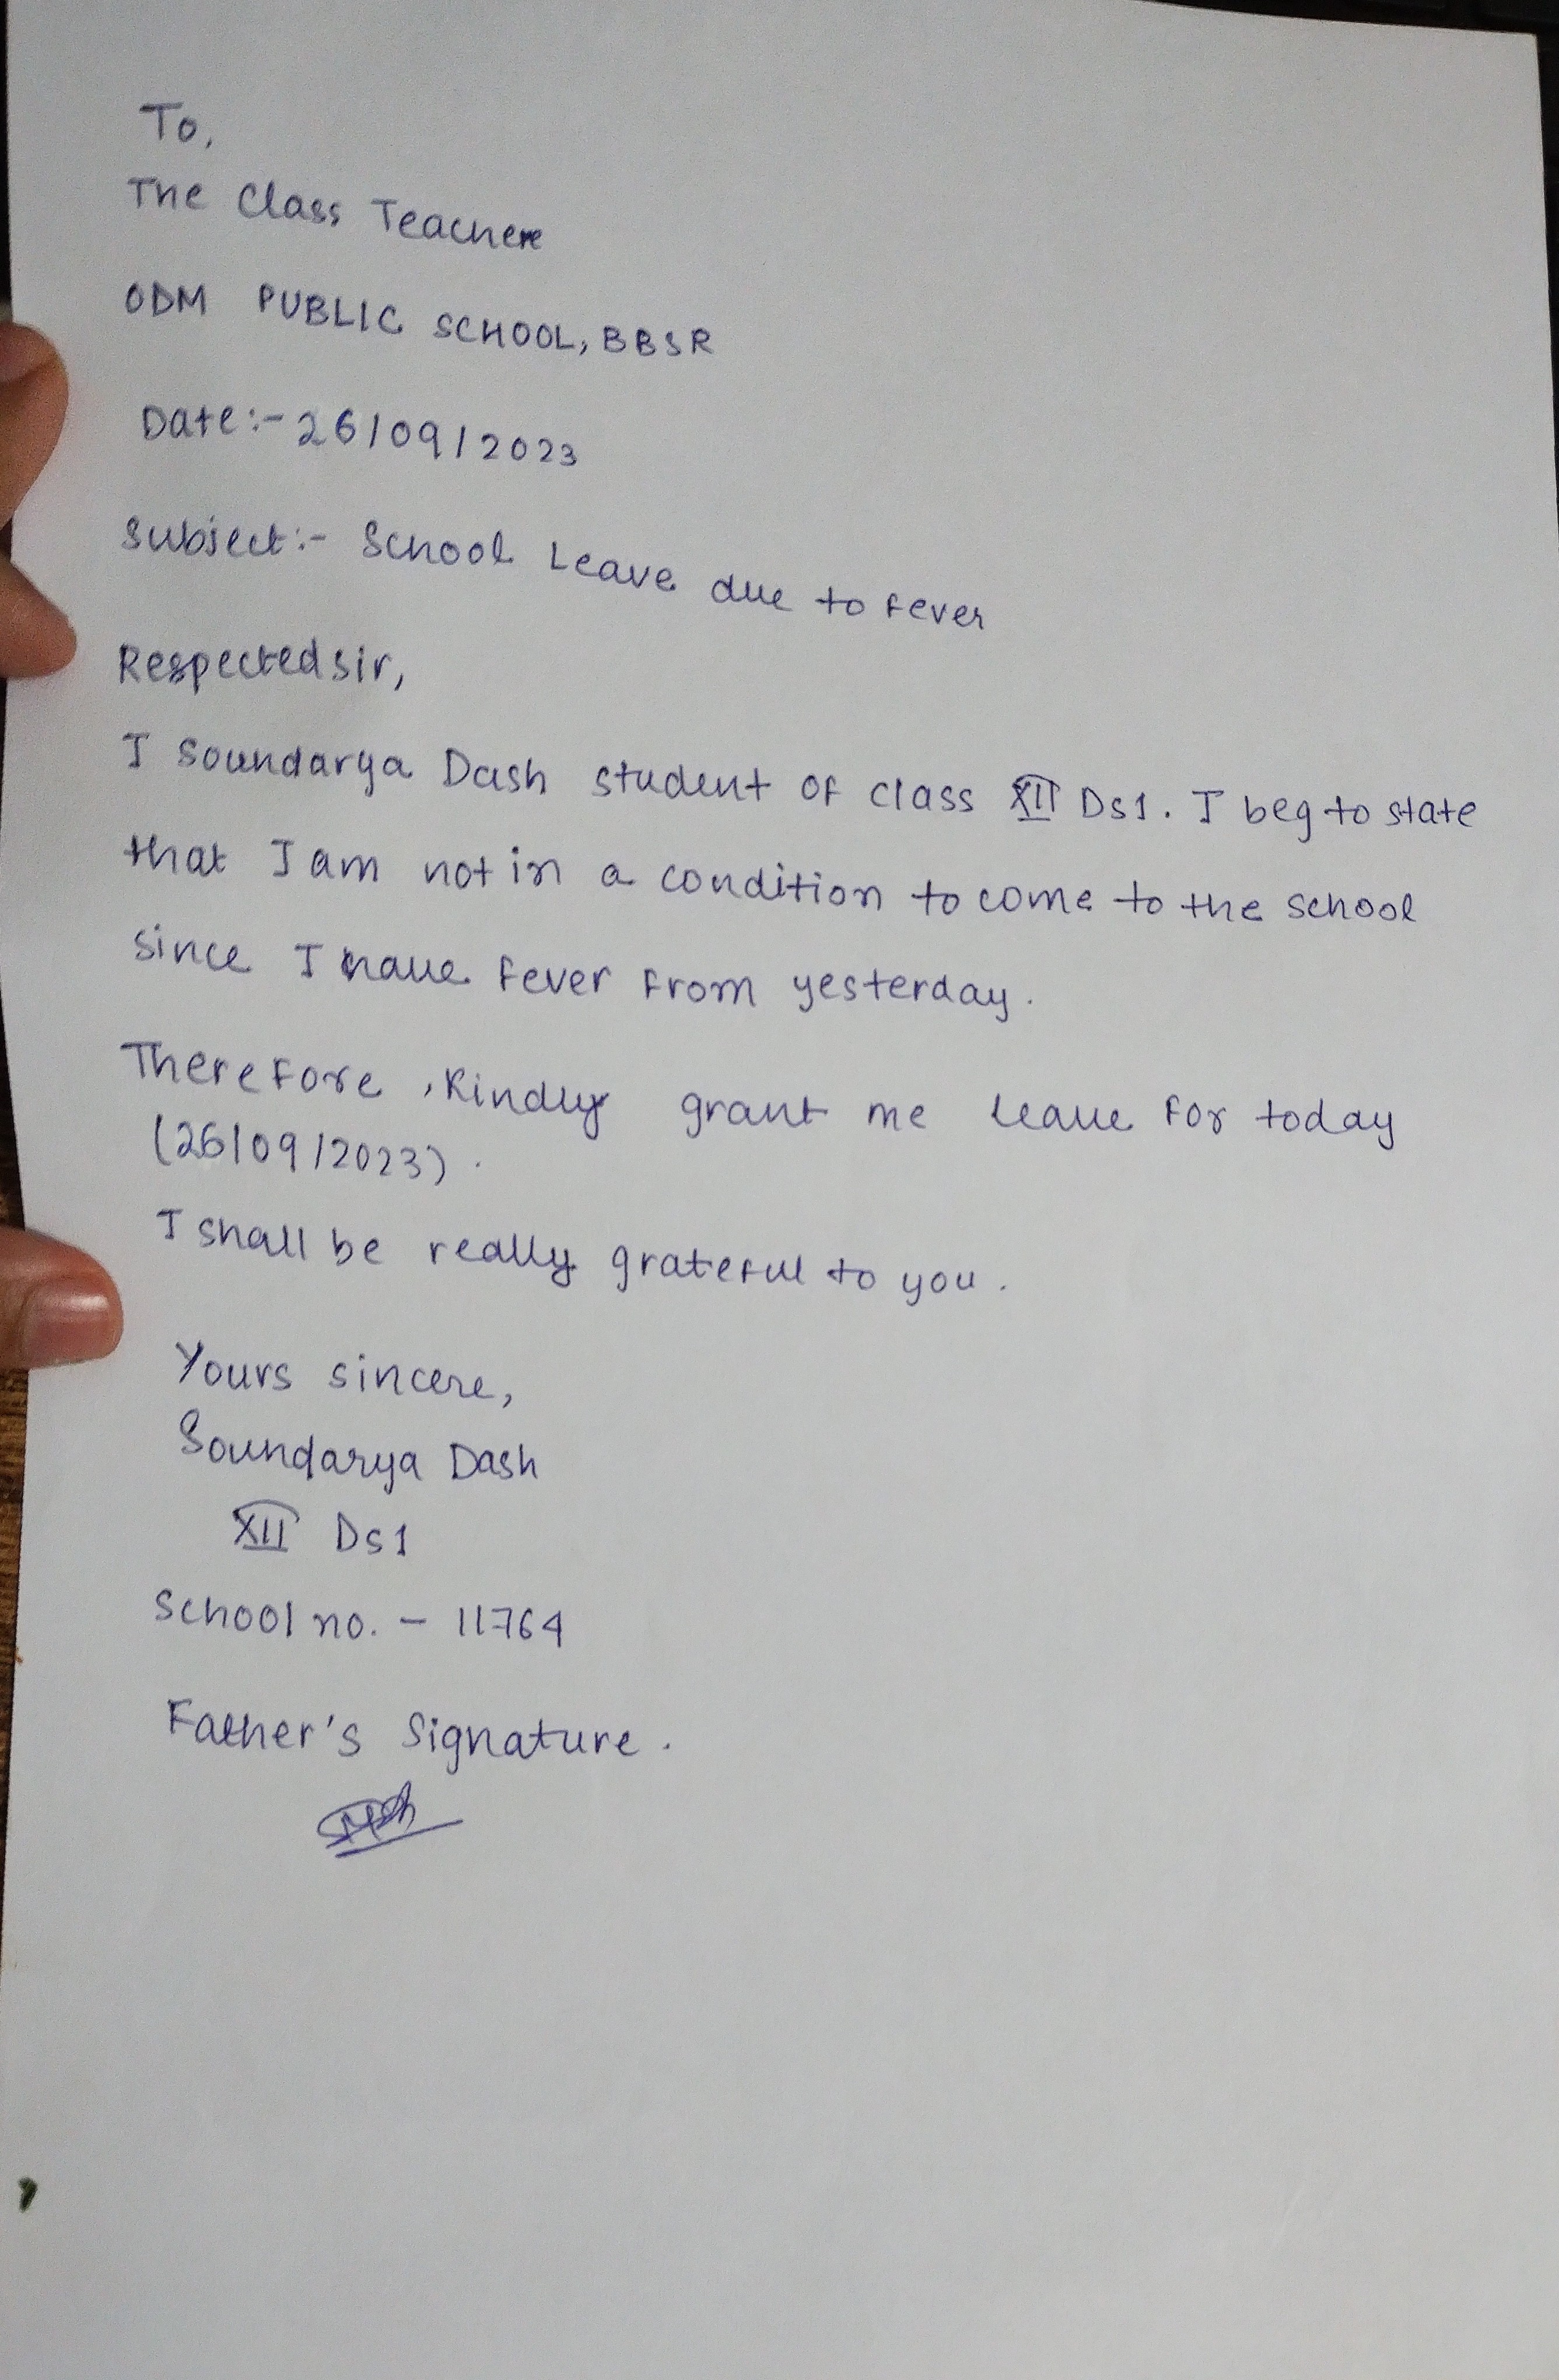 To,
The Class Teacher
ODM PUBLIC SCHOOL, BBSR
Date:- 26/09/2023
Subject:- School Leave due to fever
Respected sir,
I Soundarya Dash student of class XII Ds1. I beg to state
that I am not in a condition to come to the school
since I have fever from yesterday.
Therefore, Kindly grant me leave for today
(26/09/2023).
I shall be really grateful to you.
Yours sincere,
Soundarya Dash
XII Ds1
School no. - 11764
Father's Signature.